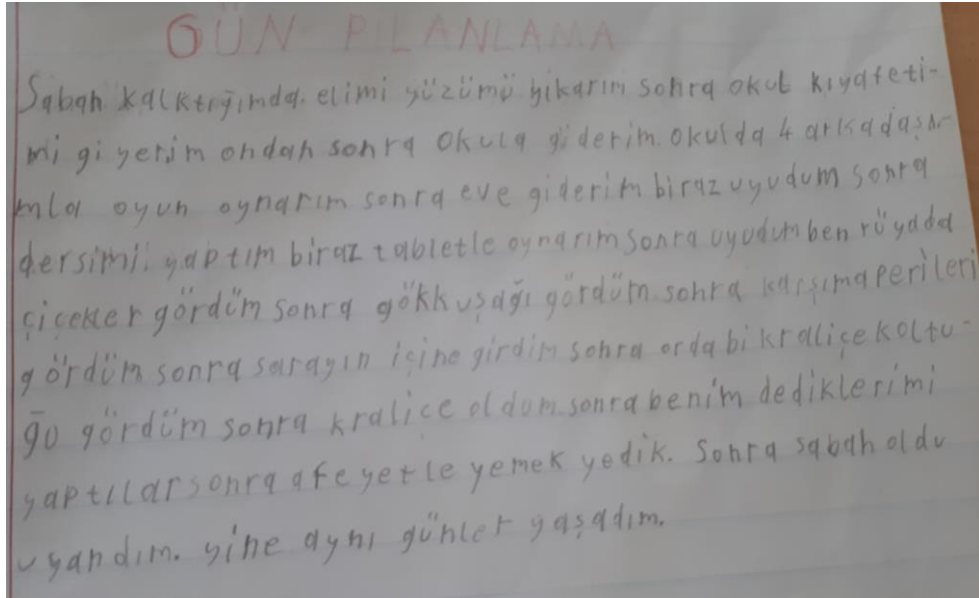 GÜN PILANLAMA
Sabah kalktığımda. elimi yüzümü yikarım sohra okul kıyafeti-
mi gi yerim ondan sonra okula giderim. okulda 4 arkadaşı-
mla oyun oynarım sonra eve giderim biraz uyudum sonra
dersimi. yaptım biraz tabletle oynarım sonra uyudum ben rüyada
çiçekler gördüm sonra gökkuşağı gördüm. sohra karşıma perileri
gördüm sonra sarayın içine girdim sohra orda bi kraliçe koltu-
ğu gördüm sohra kraliçe oldum. sonra benim dediklerimi
yaptılar sonra afeyetle yemek yedik. Sonra sabah oldu
uyandım. yine aynı günler yaşadım.